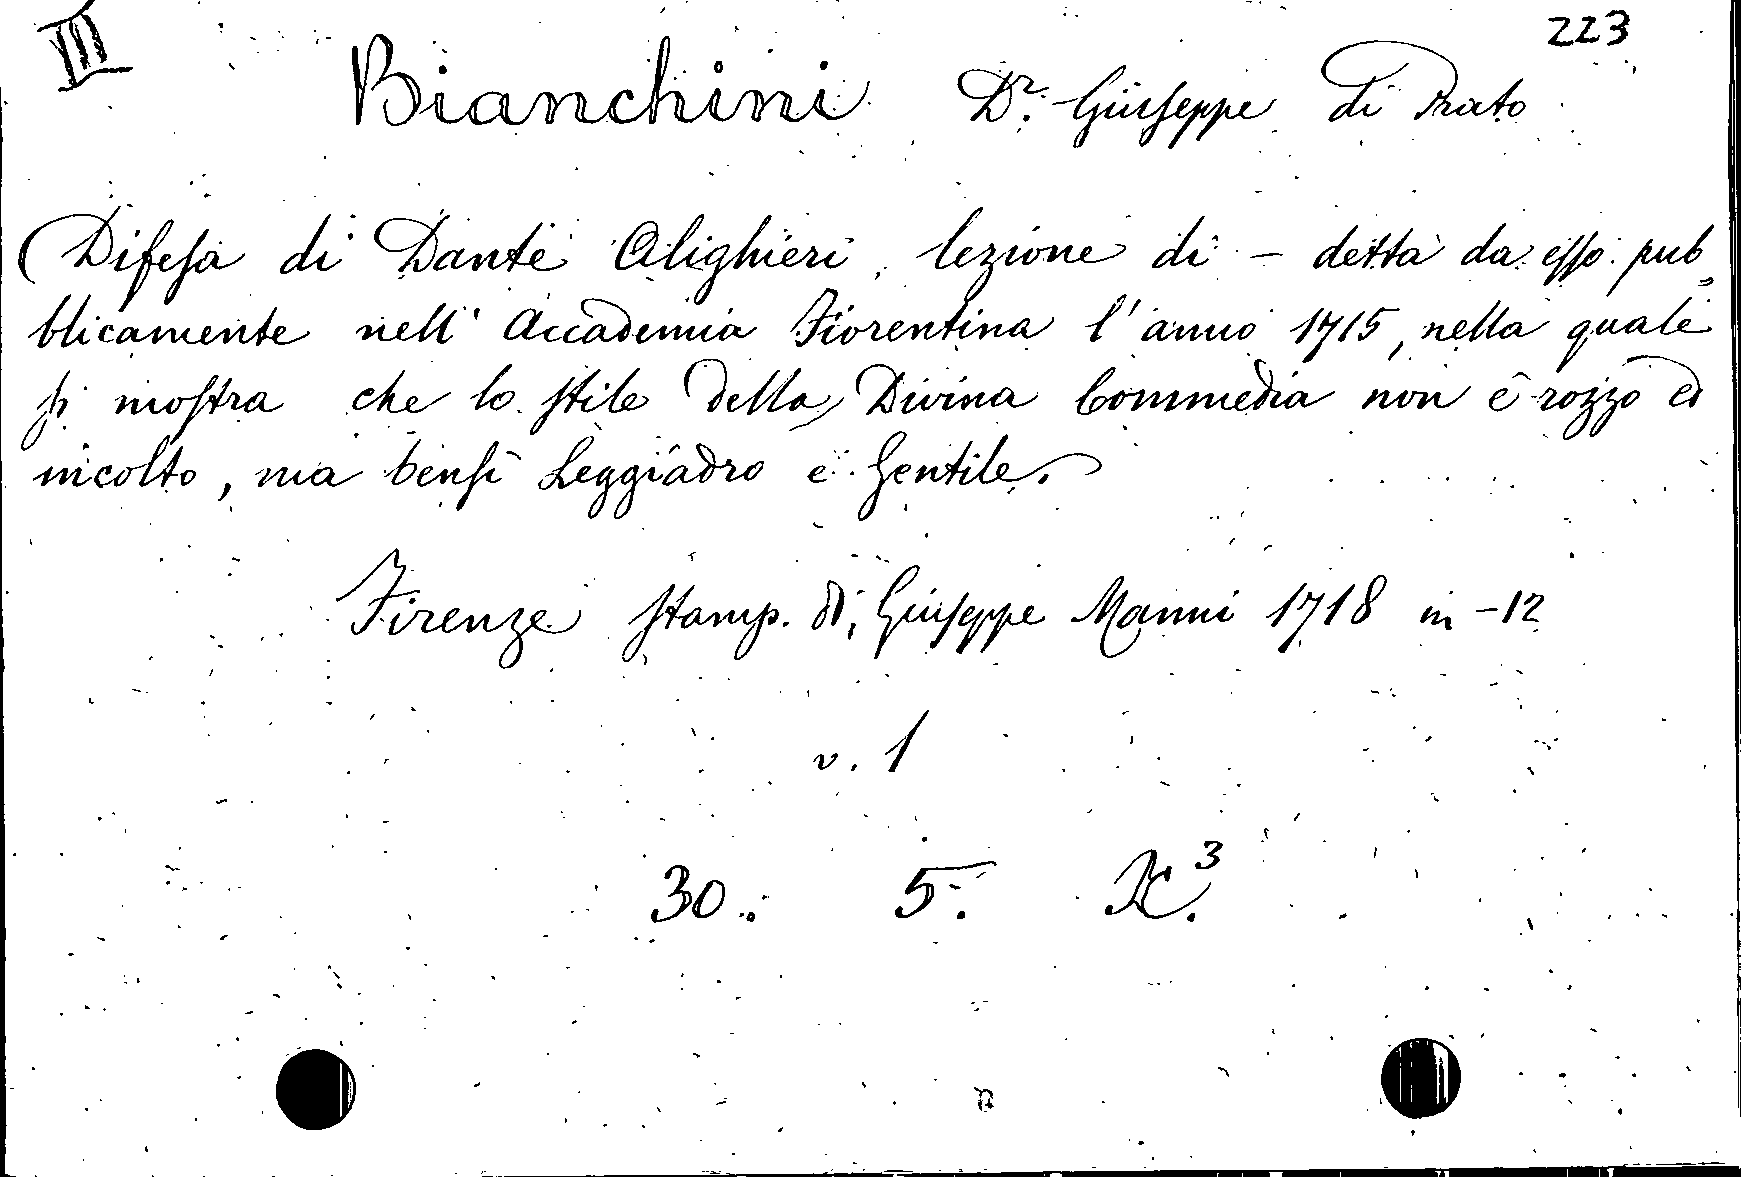 III
223
Bianchini Dr. Giuseppe di Prato
Difesa di Dante Alighieri, lezione di - detta da esso pub„
blicamente nell' Accademia Fiorentina l'anno 1715, nella quale
si mostra che lo stile della Divina Commedia non è rozzo ed
incolto, ma bensì Leggiadro e Gentile.
Firenze stamp. di Giuseppe Manni 1718 in -12
v. 1
30. 5. K.3